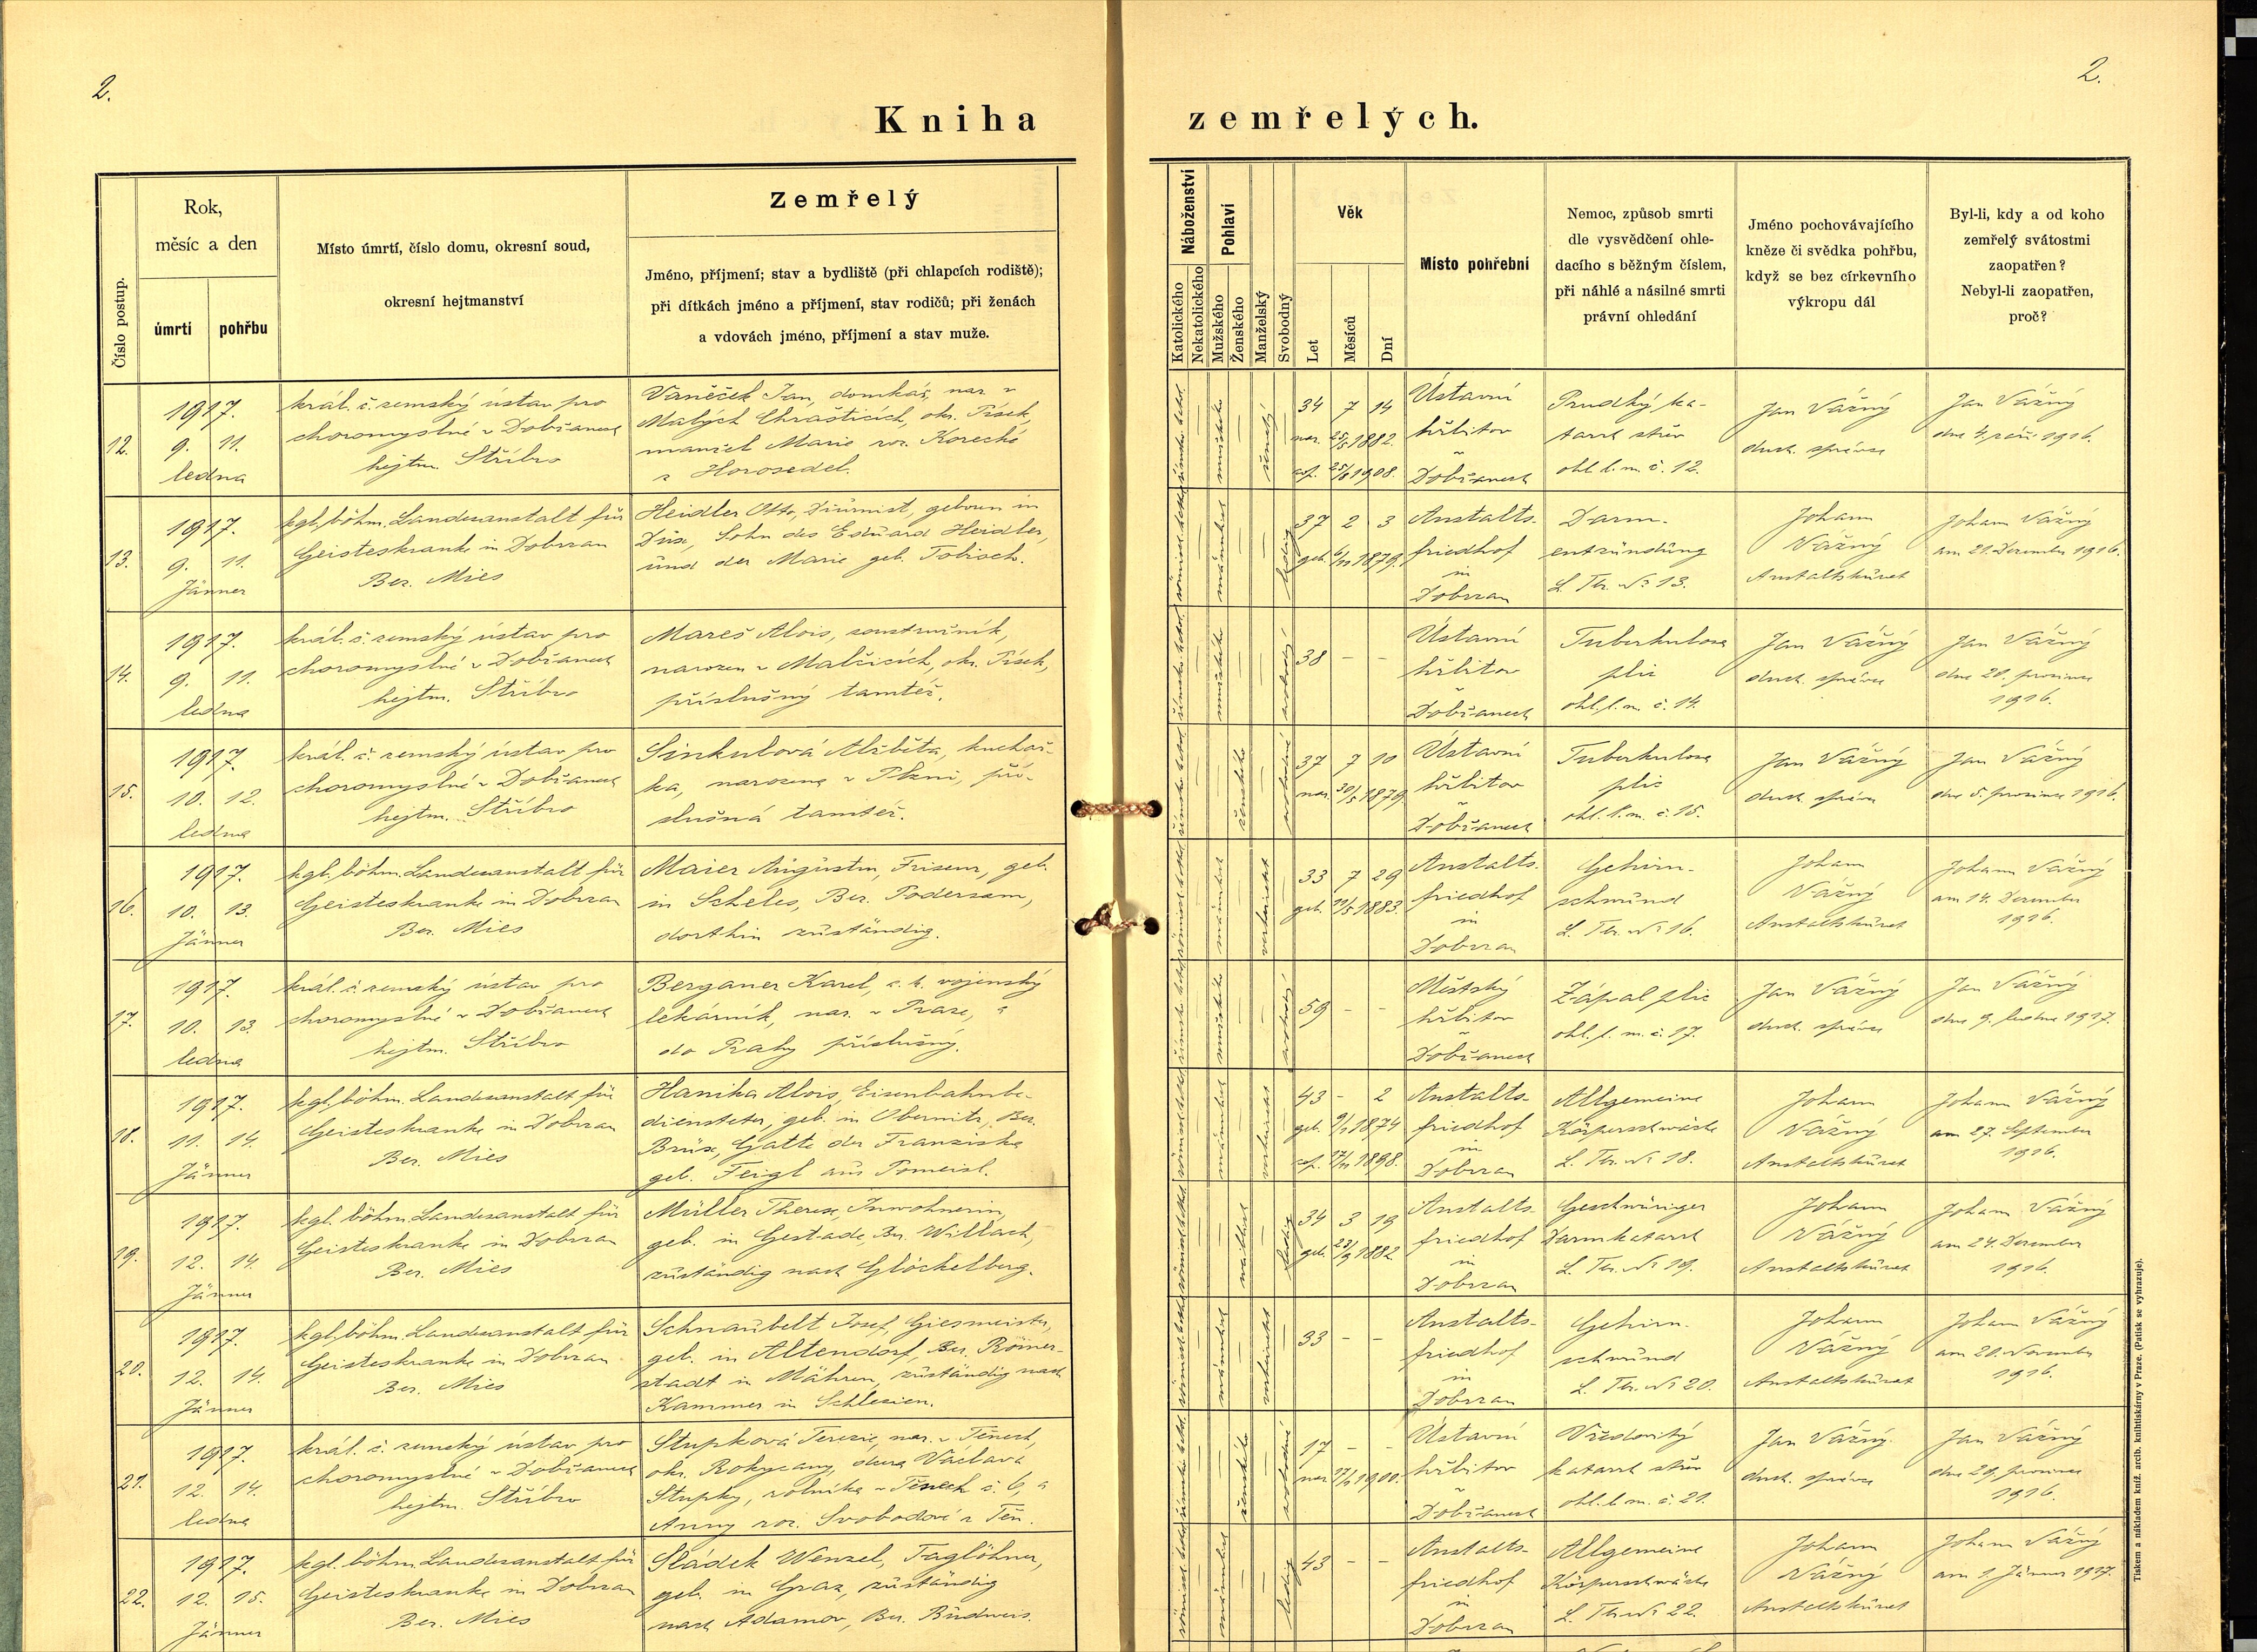 2.
2.
Kniha zemřelých.
Číslo postup.
Rok,
měsíc a den
úmrtí
pohřbu
Místo úmrtí, číslo domu, okresní soud,
okresní hejtmanství
Zemřelý
Jméno, příjmení; stav a bydliště (při chlapcích rodiště);
při dítkách jméno a příjmení, stav rodičů; při ženách
a vdovách jméno, příjmení a stav muže.
Náboženství
Katolického
Nekatolického
Pohlaví
Mužského
Ženského
Manželský
Svobodný
Věk
Let
Měsíců
Dní
Místo pohřební
Nemoc, způsob smrti
dle vysvědčení ohle-
dacího s běžným číslem,
při náhlé a násilné smrti
právní ohledání
Jméno pochovávajícího
kněze či svědka pohřbu,
když se bez církevního
výkropu dál
Byl-li, kdy a od koho
zemřelý svátostmi
zaopatřen?
Nebyl-li zaopatřen,
proč?
12.
1917.
9. 11.
ledna
král. č. zemský ústav pro
choromyslné v Dobřanech
hejtm. Stříbro
Vaněček Jan, domkář, nar. v
Malých Chrašticích, okr. Písek,
manžel Marie roz. Korecké
z Horosedel.
mužského
ženatý
34 7 14
nar. 25/5 1882.
cop. 25/8 1908.
Ústavní
hřbitov
v
Dobřanech
Prudký ka-
tarrh střev
ohl. l. m. č. 12.
Jan Vážný
duch. správce
Jan Vážný
dne 4. září 1916.
13.
1917.
9. 11.
Jänner
kgl. böhm. Landesanstalt für
Geisteskranke in Dobrzan
Bez. Mies
Heidler Otto, Diurnist, geboren in
Dux, Sohn des Eduard Heidler,
und der Marie geb. Tobisch.
männlich
ledig
37 2 3
geb. 6/11 1879.
Anstalts-
friedhof
in
Dobrzan
Darm-
entzündung
L. Th. No 13.
Johann
Vážný
Anstaltskurat
Johann Vážný
am 21. Dezember 1916.
14.
1917.
9. 11.
ledna
král. č. zemský ústav pro
choromyslné v Dobřanech
hejtm. Stříbro
Mareš Alois, soustružník,
narozen v Malčicích, okr. Písek,
příslušný tamtéž.
mužského
svobodný
38 - -
Ústavní
hřbitov
v
Dobřanech
Tuberkulosa
plic
ohl. l. m. č. 14.
Jan Vážný
duch. správce
Jan Vážný
dne 20. prosince
1916.
15.
1917.
10. 12.
ledna
král. č. zemský ústav pro
choromyslné v Dobřanech
hejtm. Stříbro
Sinkulová Alžběta, kuchař-
ka, narozena v Plzni, pří-
slušná tamtéž.
ženského
svobodné
37 7 10
nar. 30/5 1879.
Ústavní
hřbitov
v
Dobřanech
Tuberkulosa
plic
ohl. l. m. č. 15.
Jan Vážný
duch. správce
Jan Vážný
dne 5. prosince 1916.
16.
1917.
10. 13.
Jänner
kgl. böhm. Landesanstalt für
Geisteskranke in Dobrzan
Bez. Mies
Maier Augustin, Friseur, geb.
in Scheles, Bez. Podersam,
dorthin zuständig.
männlich
verheiratet
33 7 29
geb. 11/5 1883.
Anstalts-
friedhof
in
Dobrzan
Gehirn-
schwund
L. Th. No 16.
Johann
Vážný
Anstaltskurat
Johann Vážný
am 14. Dezember
1916.
17.
1917.
10. 13.
ledna
král. č. zemský ústav pro
choromyslné v Dobřanech
hejtm. Stříbro
Berganer Karel, c. k. vojenský
lékárník, nar. v Praze, a
do Prahy příslušný.
mužského
svobodný
59 - -
Městský
hřbitov
v
Dobřanech
Zápal plic
ohl. l. m. č. 17.
Jan Vážný
duch. správce
Jan Vážný
dne 9. ledna 1917.
18.
1917.
11. 14.
Jänner
kgl. böhm. Landesanstalt für
Geisteskranke in Dobrzan
Bez. Mies
Hanika Alois, Eisenbahnbe-
diensteter, geb. in Obernitz, Bez.
Brüx, Gatte der Franziska
geb. Feigl aus Pomeisl.
männlich
verheiratet
43 - 2
geb. 9/1 1874
cop. 1898.
Anstalts-
friedhof
in
Dobrzan
Allgemeine
Körperschwäche
L. Th. No 18.
Johann
Vážný
Anstaltskurat
Johann Vážný
am 27. September
1916.
19.
1917.
12. 14.
Jänner
kgl. böhm. Landesanstalt für
Geisteskranke in Dobrzan
Bez. Mies
Müller Therese, Inwohnerin,
geb. in Gestade, Bez. Willach,
zuständig nach Glöckelberg.
weiblich
ledig
34 3 19
geb. 23/9 1882
Anstalts-
friedhof
in
Dobrzan
Geschwüriger
Darmkatarrh
L. Th. No 19.
Johann
Vážný
Anstaltskurat
Johann Vážný
am 24. Dezember
1916.
20.
1917.
12. 14.
Jänner
kgl. böhm. Landesanstalt für
Geisteskranke in Dobrzan
Bez. Mies
Schnaubelt Josef, Giesmeister,
geb. in Altendorf, Bez. Römer-
stadt in Mähren, zuständig nach
Kammer in Schlesien.
männlich
verheiratet
33 - -
Anstalts-
friedhof
in
Dobrzan
Gehirn-
schwund
L. Th. No 20.
Johann
Vážný
Anstaltskurat
Johann Vážný
am 20. November
1916.
21.
1917.
12. 14.
ledna
král. č. zemský ústav pro
choromyslné v Dobřanech
hejtm. Stříbro
Stupková Terezie, nar. v Těnech,
okr. Rokycany, dcera Václava
Stupky, rolníka v Těnech č. 6, a
Anny roz. Svobodové z Těn.
ženského
svobodné
17 - -
nar. 1900.
Ústavní
hřbitov
v
Dobřanech
Vředovitý
katarrh střev
ohl. l. m. č. 21.
Jan Vážný
duch. správce
Jan Vážný
dne 29. prosince
1916.
22.
1917.
12. 15.
Jänner
kgl. böhm. Landesanstalt für
Geisteskranke in Dobrzan
Bez. Mies
Sládek Wenzel, Taglöhner,
geb. in Graz, zuständig
nach Adamov, Bez. Budweis.
männlich
ledig
43 - -
Anstalts-
friedhof
in
Dobrzan
Allgemeine
Körperschwäche
L. Th. No 22.
Johann
Vážný
Anstaltskurat
Johann Vážný
am 1. Jänner 1917.
Tiskem a nákladem kníž. arcib. knihtiskárny v Praze. (Patisk se vyhrazuje).